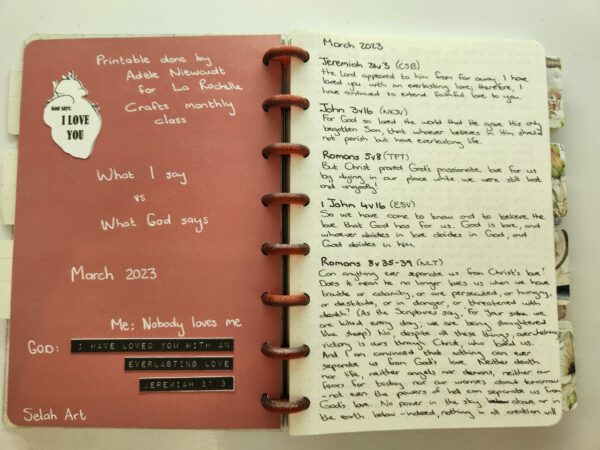 Printable done by
Adele Niewoudt
for La Rochelle
Crafts monthly
class
God says:
I LOVE
YOU
What I say
vs
What God says
March 2023
Me: Nobody loves me
GOD: I HAVE LOVED YOU WITH AN
EVERLASTING LOVE
JEREMIAH 31:3
Selah Art
March 2023
Jeremiah 31v3 (CSB)
the Lord appeared to him from far away. I have
loved you with an everlasting love; therefore, I
have continued to extend faithful love to you.
John 3v16 (NKJV)
For God so loved the world that He gave His only
begotten Son, that whoever believes in Him should
not perish but have everlasting life.
Romans 5v8 (TPT)
But Christ proved God's passionate love for us
by dying in our place while we were still lost
and ungodly!
1 John 4v16 (ESV)
So we have come to know and to believe the
love that God has for us. God is love, and
whoever abides in love abides in God, and
God abides in him.
Romans 8v35-39 (NLT)
Can anything ever separate us from Christ's love?
Does it mean he no longer loves us when we have
trouble or calamity, or are persecuted, or hungry,
or destitute, or in danger, or threatened with
death? (As the Scriptures say, "For your sake we
are killed every day; we are being slaughtered
like sheep.") No, despite all these things, overwhelming
victory is ours through Christ, who loved us.
And I am convinced that nothing can ever
separate us from God's love. Neither death
nor life, neither angels nor demons, neither our
fears for today nor our worries about tomorrow
- not even the powers of hell can separate us from
God's love. No power in the sky above or in
the earth below - indeed, nothing in all creation will